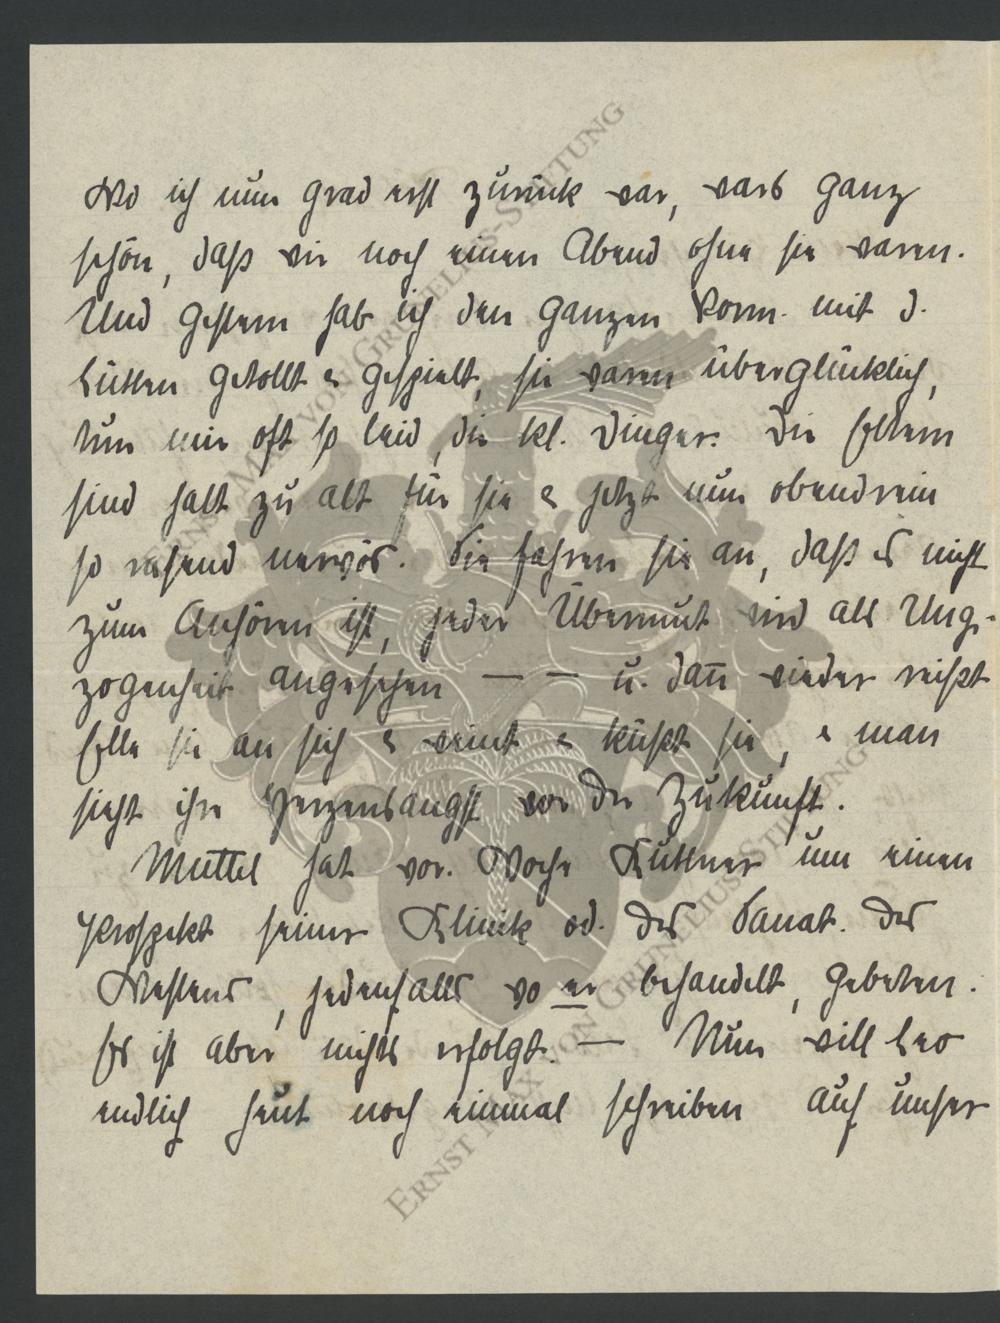 Wo ich nun grad erst zurück war, wars ganz
schön, daß wir noch einen Abend ohne sie waren.
Und gestern hab ich den ganzen Vorm. mit d.
Lütten getollt & gespielt, sie waren überglücklich,
tun mir oft so leid, die kl. Dinger. Die Eltern
sind halt zu alt für sie & jetzt nun obendrein
so rasend nervös. Sie fahren sie an, daß es nicht
zum Anhören ist, jeder Übermut wird als Unge-
zogenheit angesehen — — u. dañ wieder reißt
Elle sie an sich & weint & küßt sie, & man
sieht ihre Herzensangst vor der Zukunft.
Muttel hat vor. Woche Küttner um einen
Prospekt seiner Klinik od. des Sanat. des
Westens, jedenfalls wo er behandelt, gebeten.
Es ist aber nichts erfolgt. — Nun will Leo
endlich heut noch einmal schreiben auf unser
ERNST MAX VON GRUNELIUS-STIFTUNG
ERNST MAX VON GRUNELIUS-STIFTUNG